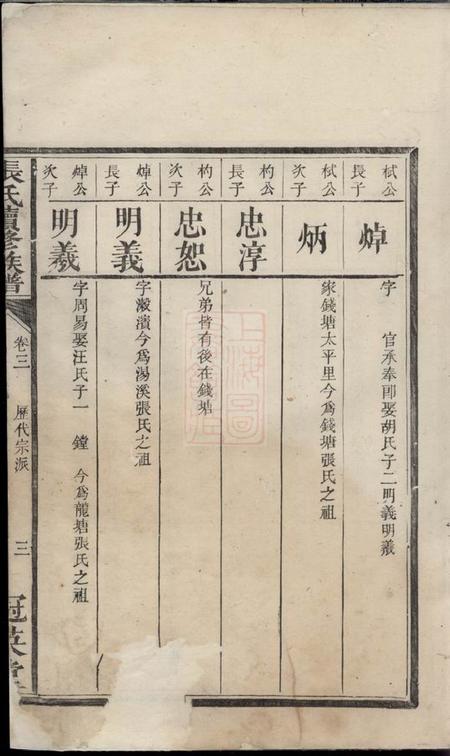 栻公長子
焯
字　官承奉郎娶胡氏子二明義明羲
栻公次子
炳
家錢塘太平里今為錢塘張氏之祖
杓公長子
忠淳
杓公次子
忠恕
兄弟皆有後在錢塘
焯公長子
明義
字瀫濱今為湯溪張氏之祖
焯公次子
明羲
字周易娶汪氏子一　鏜　今為龍塘張氏之祖
張氏續修族譜
卷三
歷代宗派
三
冠英堂
上海圖